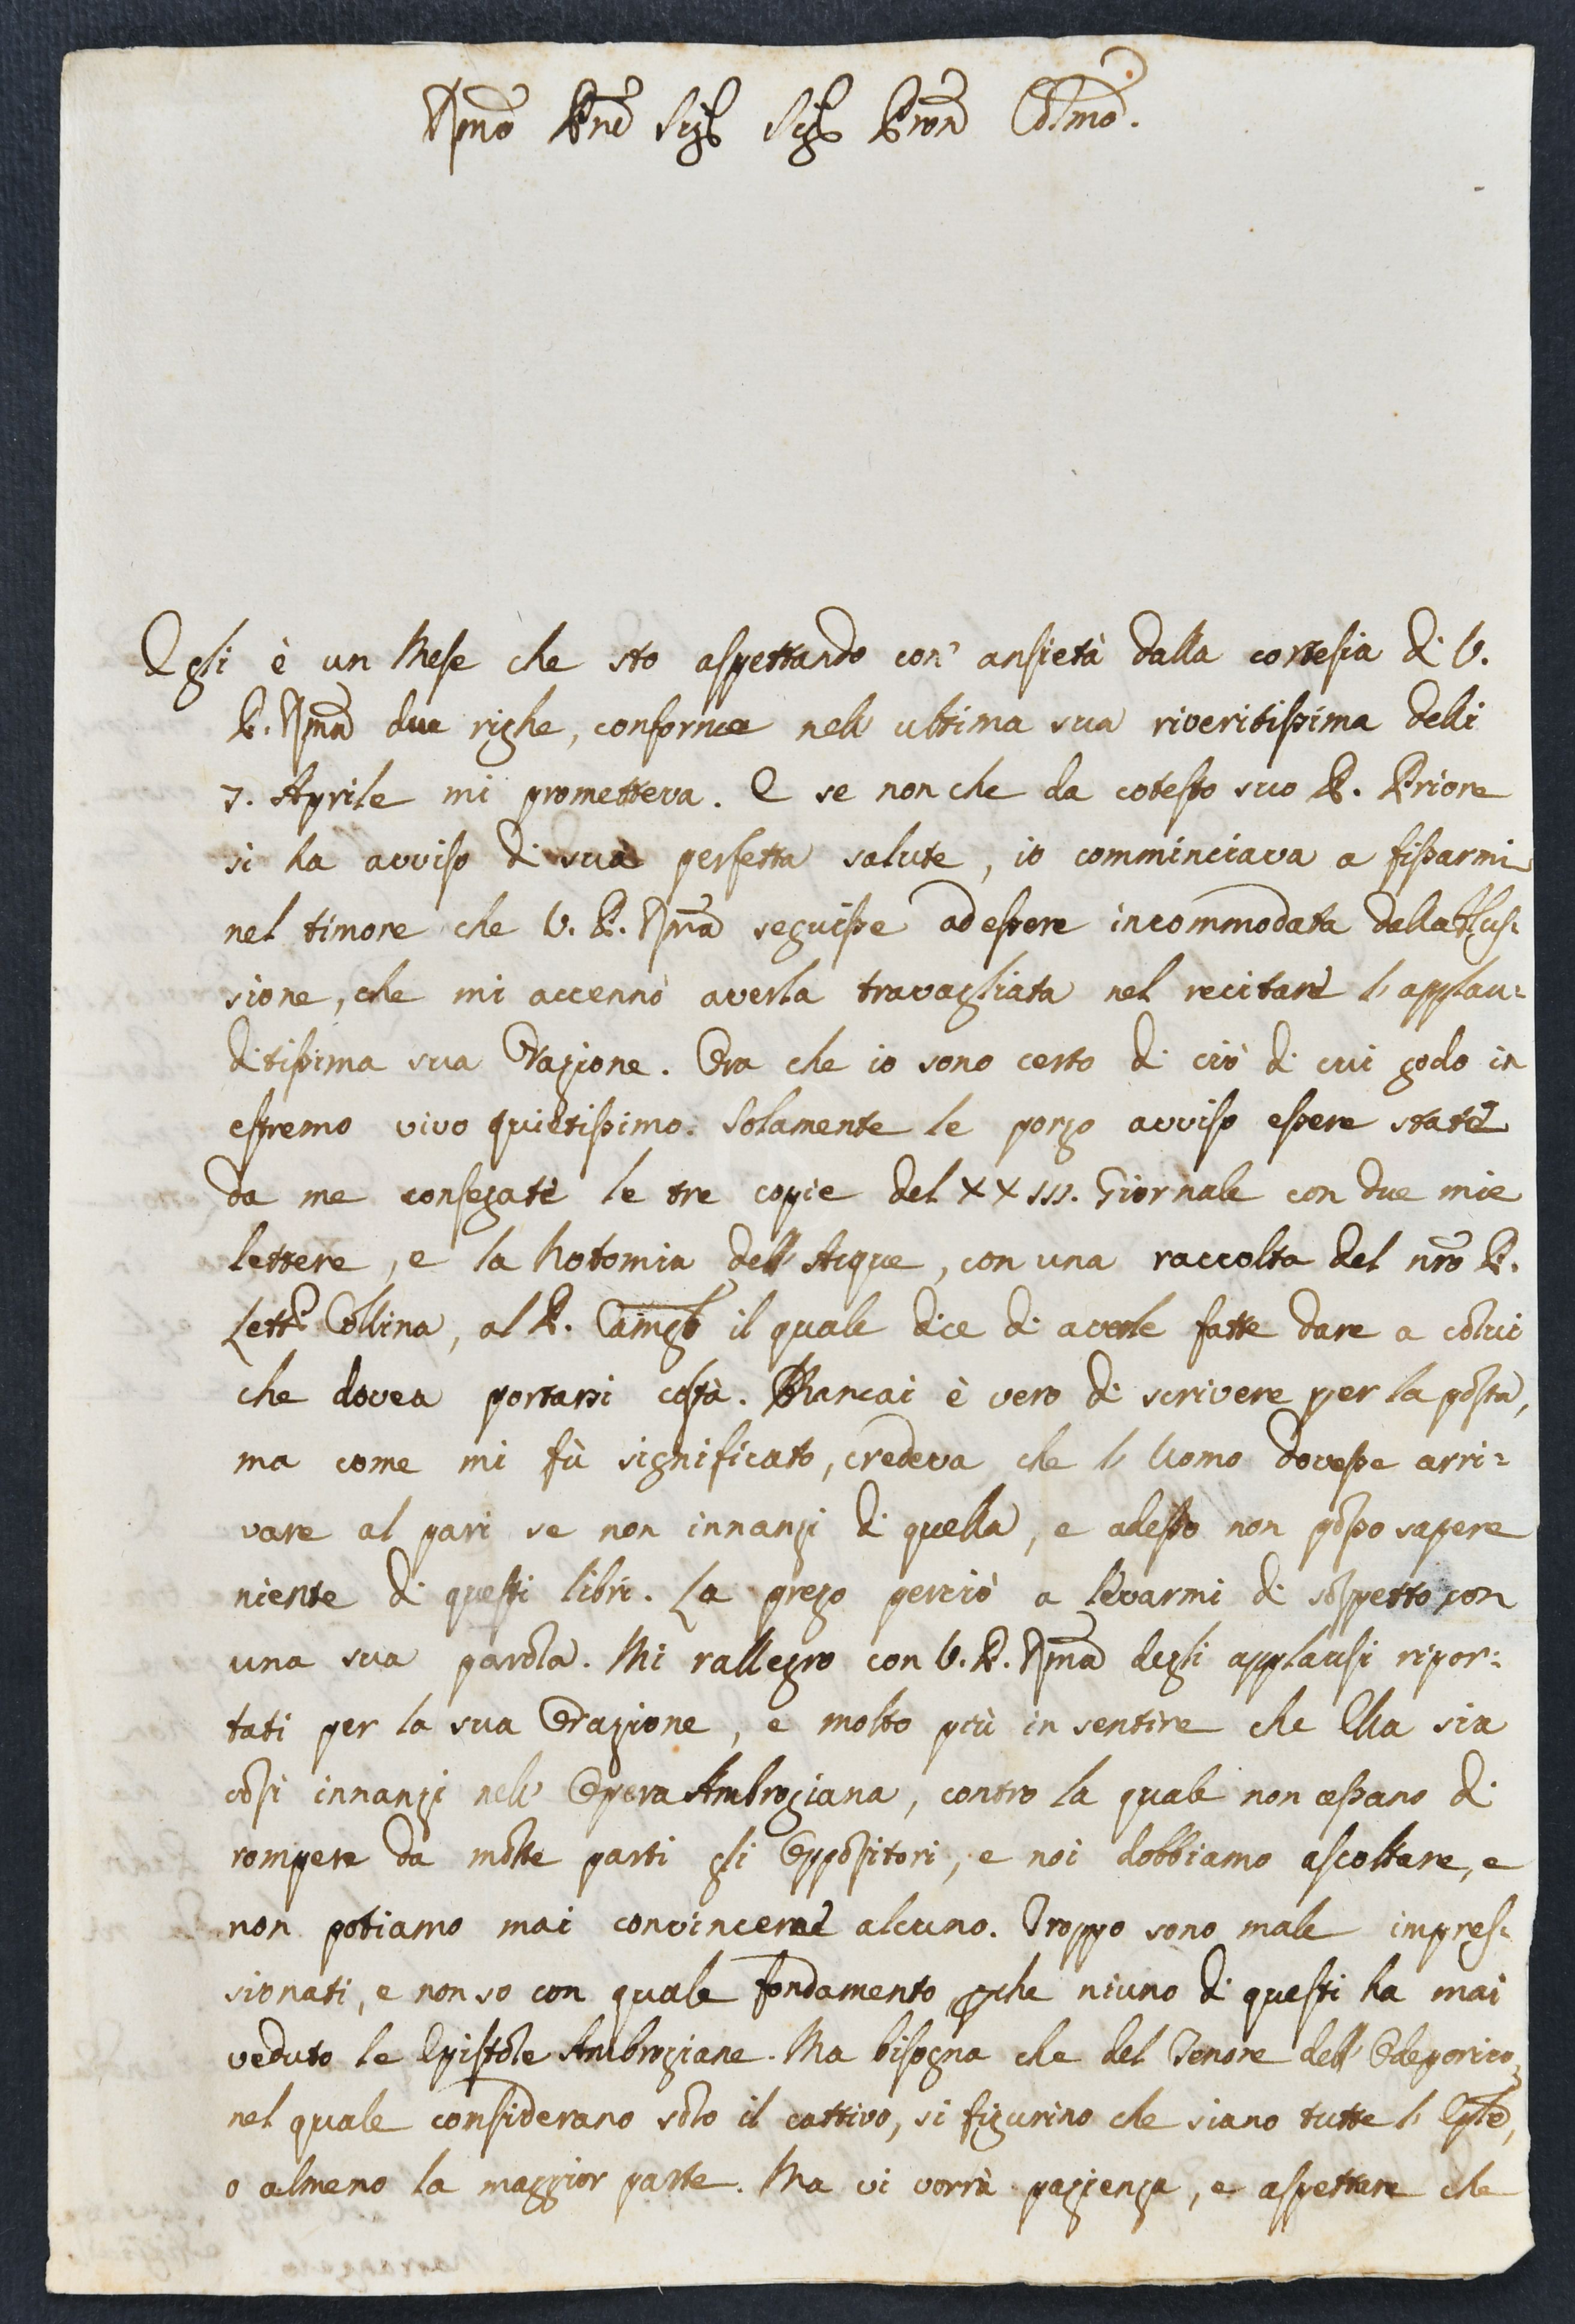 Rmo Pne Sigr Sigr Pron Colmo.
Egli è un Mese che sto aspettando con ansietà dalla cortesia di V.
P. Rma due righe, conforme nell' ultima sua riveritissima delli
7. Aprile mi prometteva. E se non che da cotesto suo P. Priore
si ha avviso di sua perfetta salute, io comminciava a fissarmi
nel timore che V. P. Rma seguisse ad essere incommodata dalla flus:
sione, che mi accennò averla travagliata nel recitare l' applau:
ditissima sua Orazione. Ora che io sono certo di ciò di cui godo in
estremo vivo quietissimo. Solamente le porgo avviso essere state
da me consegate le tre copie del XXIII. Giornale con due mie
lettere, e la Notomia dell' Acque, con una raccolta del nro P.
Lettr Collina, al P. Camgo il quale dice di averle fatte dare a colui
che dovea portarsi costà. Mancai è vero di scrivere per la posta,
ma come mi fù significato, credeva che l' Uomo dovesse arri:
vare al pari se non innanzi di quella, e adesso non posso sapere
niente di questi libri. La prego perciò a levarmi di sospetto con
una sua parola. Mi rallegro con V. P. Rma degli applausi ripor:
tati per la sua Orazione, e molto più in sentire che Ella sia
così innanzi nell' Opera Ambrogiana, contro la quale non cessano di
rompere da molte parti gli Oppositori, e noi dobbiamo ascoltare, e
non potiamo mai convincerne alcuno. Troppo sono male impres:
sionati, e non so con quale fondamento pche niuno di questi ha mai
veduto le Epistole Ambrogiane. Ma bisogna che del Tenore dell' Odeporico,
nel quale considerano solo il cattivo, si figurino che siano tutte l' Eple,
o almeno la maggior parte. Ma vi vorrà pazzienza, e aspettare che